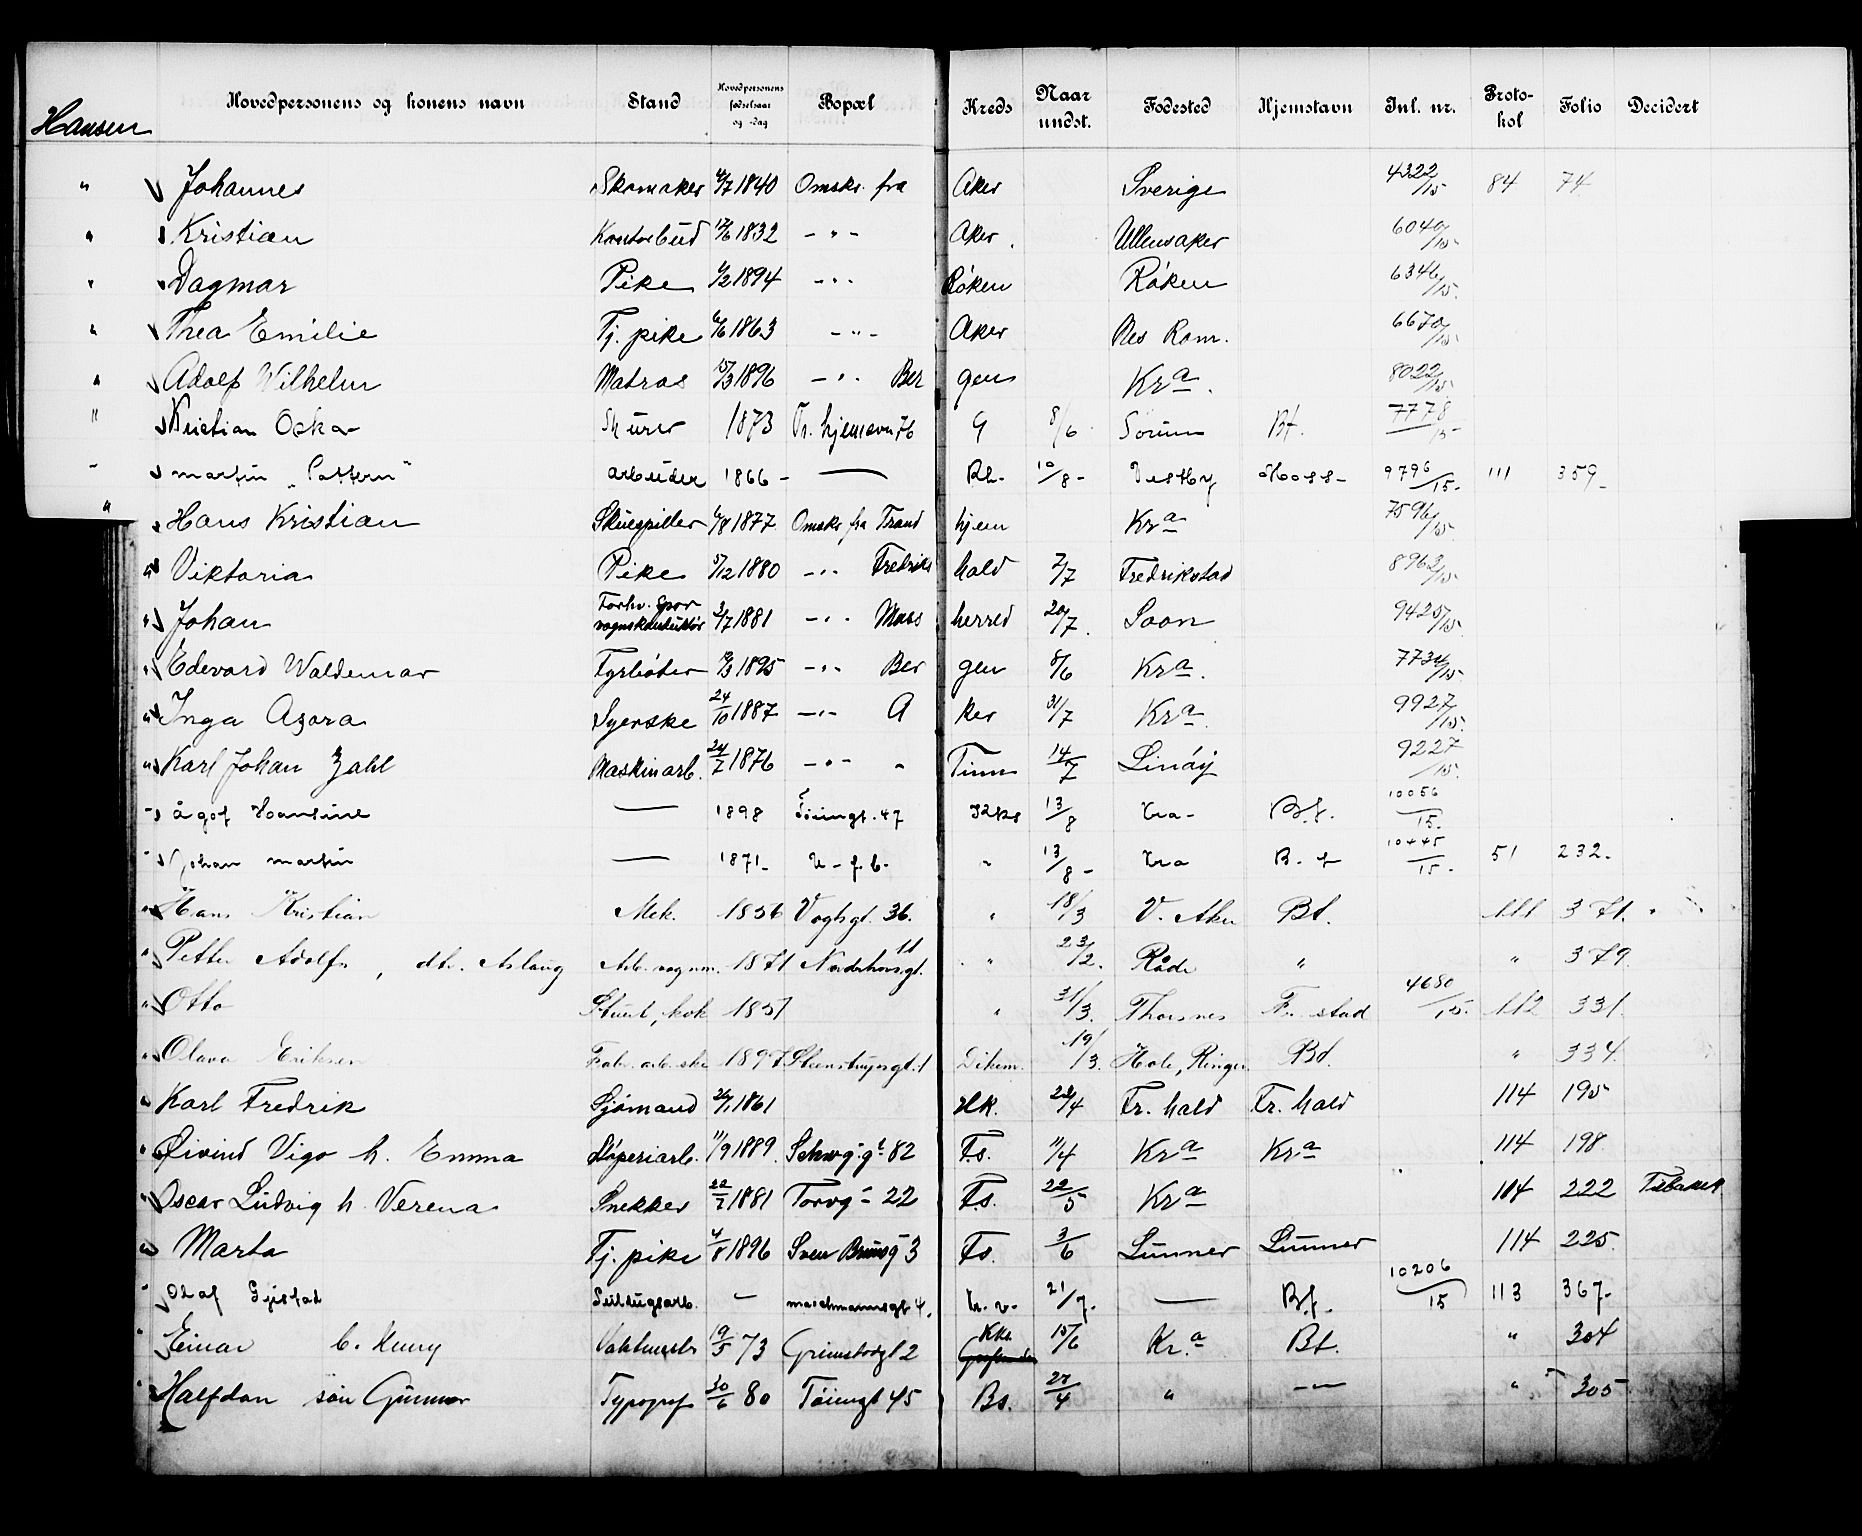 Hansen
Hovedpersonens og konens navn Stand Hovedpersonens fødselsaar og -dag Bopæl Kreds Naar undst. Fødested Hjemstavn Inl. nr. Protokol Folio Decidert
" Johannes Skomaker 1840 Omskr. fra Aker Sverige 4322/15 84 74
" Kristian Kontorbud 1832 - " - Aker Ullensaker 6040/15
" Dagmar Pike 1/2 1894 - " - Røken Røken 6346/15
" Thea Emilie Tj. pike 1863 - " - Aker Nes Rom. 6670/15
" Adolf Wilhelm Matros 1896 - " - Bergen Kra. 8022/15
" Kristian Oskar 1873 G 8/6 Sørum Bf. 7778/15
" Martin Arbeider 1866 - Rk. 10/8 Vestby Moss 9796/15 111 359
" Hans Kristian Skuespiller 1877 Omskr. fra Trondhjem Kra 7596/15
" Viktoria Pike 1880 - " - Fredrikshald 2/7 Fredrikstad 8962/15
" Johan Forhv. sporvognskonduktør 3/7 1881 - " - Mossherred 20/7 Soon 9425/15
" Edevard Waldemar Fyrbøter 1895 - " - Bergen 8/6 Kra. 7734/15
" Inga Azora Syerske 24/10 1887 - " - Aker 31/7 Kra. 9927/15
" Karl Johan Zahl Maskinarb. 24/7 1876 - " - " Tinn 14/7 9227/15
" Ågot Hansine — 1898 Tøiengt. 47 13/8 Kra. B.f. 10056/15
" Johan Martin — 1871 U-f.b. " 13/8 Kra B.f 10445/15 51 232
" Hans Kristian Mek. 1856 Vogtsgt. 36. " 18/3 V. Aker Bf. 111 371
" Petter Adolf, dtr. Aslaug Arb. vognm. 1871 Nordahlsgt. 11 " 23/2 Råde " " 379
" Otto Stuert, kok 1857 " 31/3 Thorsnes Fr. stad 4680/15 112 331
" Olava Eriksen Fabr. arb.ske 1897 Steenstrupsgt. 1 Dikem. 19/3 Hole, Ringer. Bf. " 334
" Karl Fredrik Sjømand 1861 Hk. 22/4 Fr. hald Fr. hald 114 195
" Øivind Vigo h. Emma Støperiarb. 11/9 1889 Schwg.gt 82 F.s. 11/4 Kra Kra 114 198
" Oscar Ludvig h. Verena Snekker 22/7 1881 Torvg. 22 F.s. 22/5 Kra 114 222 Tilbaket
" Marta Tj. pike 4/8 1896 Sven Brunsg 3 Fs. 3/6 Lunner Lunner 114 225
" Olaf Gjestad marchmannsgt 4. 21/7 — B.f. 10206/15 113 367
" Einar h. Kuny Vaktmstr 19/5 73 Grimstadgt 2 Kke 15/6 Kr.a Bf. " 304
" Halfdan søn Gunnar Typograf 30/6 80 Tøiengt 45 Bs. 27/4 " - " - " 305